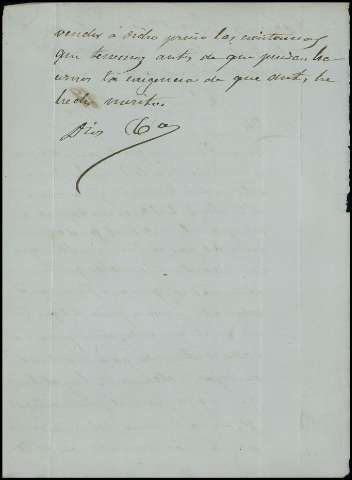 vender á dicho precio las existencias
que tenemos antes de que puedan ha-
cernos la exigencia de que antes he
hecho mérito.
Dios &a